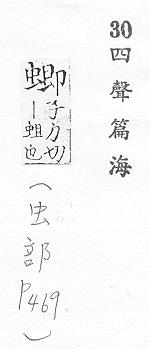 30四聲篇海
蝍子力切
丨蛆也
(虫部P469.)